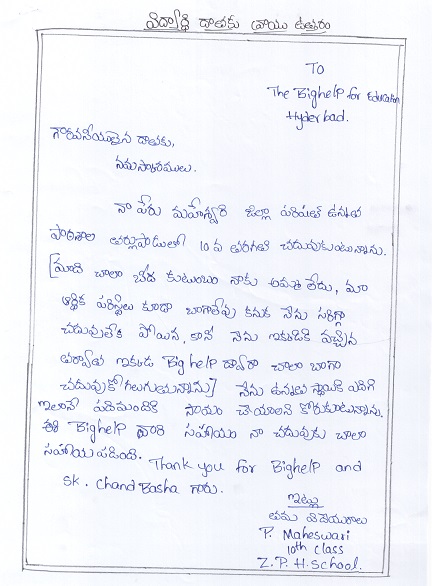 విద్యార్థి దాతకు వ్రాయు ఉత్తరం
To
The Bighelp for Education
Hyderbad.
గౌరవనీయులైన దాతకు,
నమస్కారములు.
నా పేరు మహేశ్వరి జిల్లా పరిషత్ ఉన్నత
పాఠశాల తర్లుపాడులో 10 వ తరగతి చదువుకుంటున్నాను.
[మాది చాలా బీద కుటుంబం నాకు అమ్మ లేదు, మా
ఆర్థిక పరిస్థితి కూడా బాగాలేవు కనుక నేను సరిగ్గా
చదువులేక పోయిన, కానీ నేను ఇక్కడికి వచ్చిన
తర్వాత ఇక్కడ Bighelp ద్వారా చాలా బాగా
చదువుకోగలుగుతున్నాను] నేను ఉన్నత స్థాయికి ఎదిగి
ఇలానే పదిమందికి సాయం చేయాలని కోరుకుంటున్నాను.
ఈ Bighelp వారి సహాయం నా చదువుకు చాలా
సహాయపడింది.
Thank you for Bighelp and
Sk. Chand Basha గారు.
ఇట్లు
తమ విధేయురాలు
P. Maheswari
10th class
Z.P.H.School.